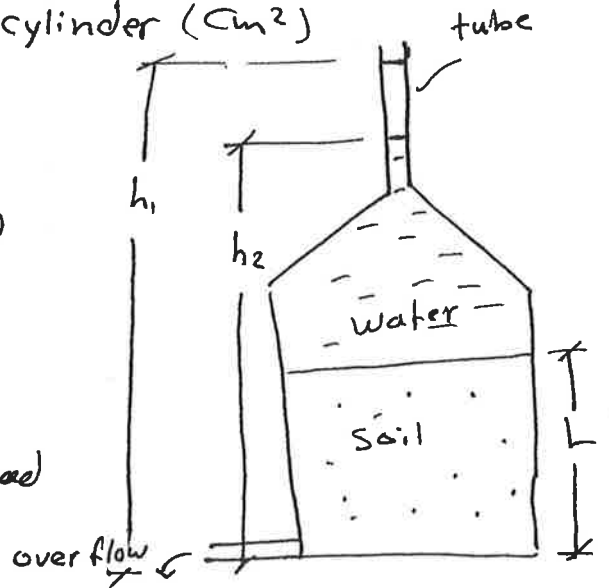 cylinder (Cm²)
tube
h₁
h₂
water
soil
L
over flow